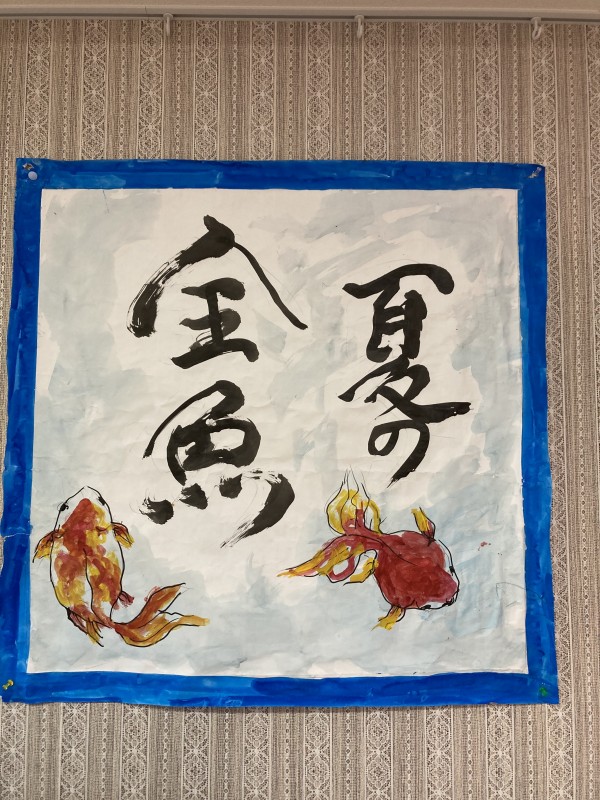 夏の
金魚